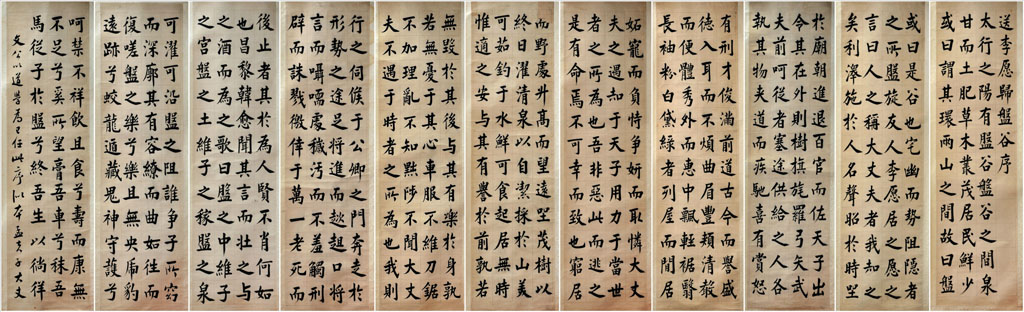 送李愿歸盤谷序
太行之陽有盤谷盤谷之間泉
甘而土肥草木叢茂居民鮮少
或謂其環兩山之間故曰盤
或曰是谷也宅幽而勢阻隱者
之所盤旋友人李愿居之愿之
言曰人之稱大丈夫者我知之
矣利澤施於人名聲昭於時坐
於廟朝進退百官而佐天子出
令其在外則樹旗旄羅弓矢武
夫前呵從者塞途供給之人各
執其物夾道而疾馳喜有賞怒
有刑才俊滿前道古今而譽盛
德入耳而不煩曲眉豐頰清聲
而便體秀外而惠中飄輕裾翳
長袖粉白黛綠者列屋而閒居
妬寵而負恃爭妍而取憐大丈
夫之遇知於天子用力於當世
者之所為也吾非惡此而逃之
是有命焉不可幸而致也窮居
而野處升高而望遠坐茂樹以
終日濯清泉以自潔採於山美
可茹釣於水鮮可食起居無時
惟適之安與其有譽於前孰若
無毀於其後與其有樂於身孰
若無憂於其心車服不維刀鋸
不加理亂不知黜陟不聞大丈
夫不遇於時者之所為也我則
行之伺候於公卿之門奔走於
形勢之途足將進而趑趄口將
言而囁嚅處穢污而不羞觸刑
辟而誅戮徼倖於萬一老死而
後止者其於為人賢不肖何如
也昌黎韓愈聞其言而壯之與
之酒而為之歌曰盤之中維子
之宮盤之土維子之稼盤之泉
可濯可沿盤之阻誰爭子所窈
而深廓其有容繚而曲如往而
復嗟盤之樂兮樂且無央虎豹
遠跡兮蛟龍遁藏鬼神守護兮
呵禁不祥飲且食兮壽而康無
不足兮奚所望膏吾車兮秣吾
馬從子於盤兮終吾生以徜徉
文公以道為己任此序